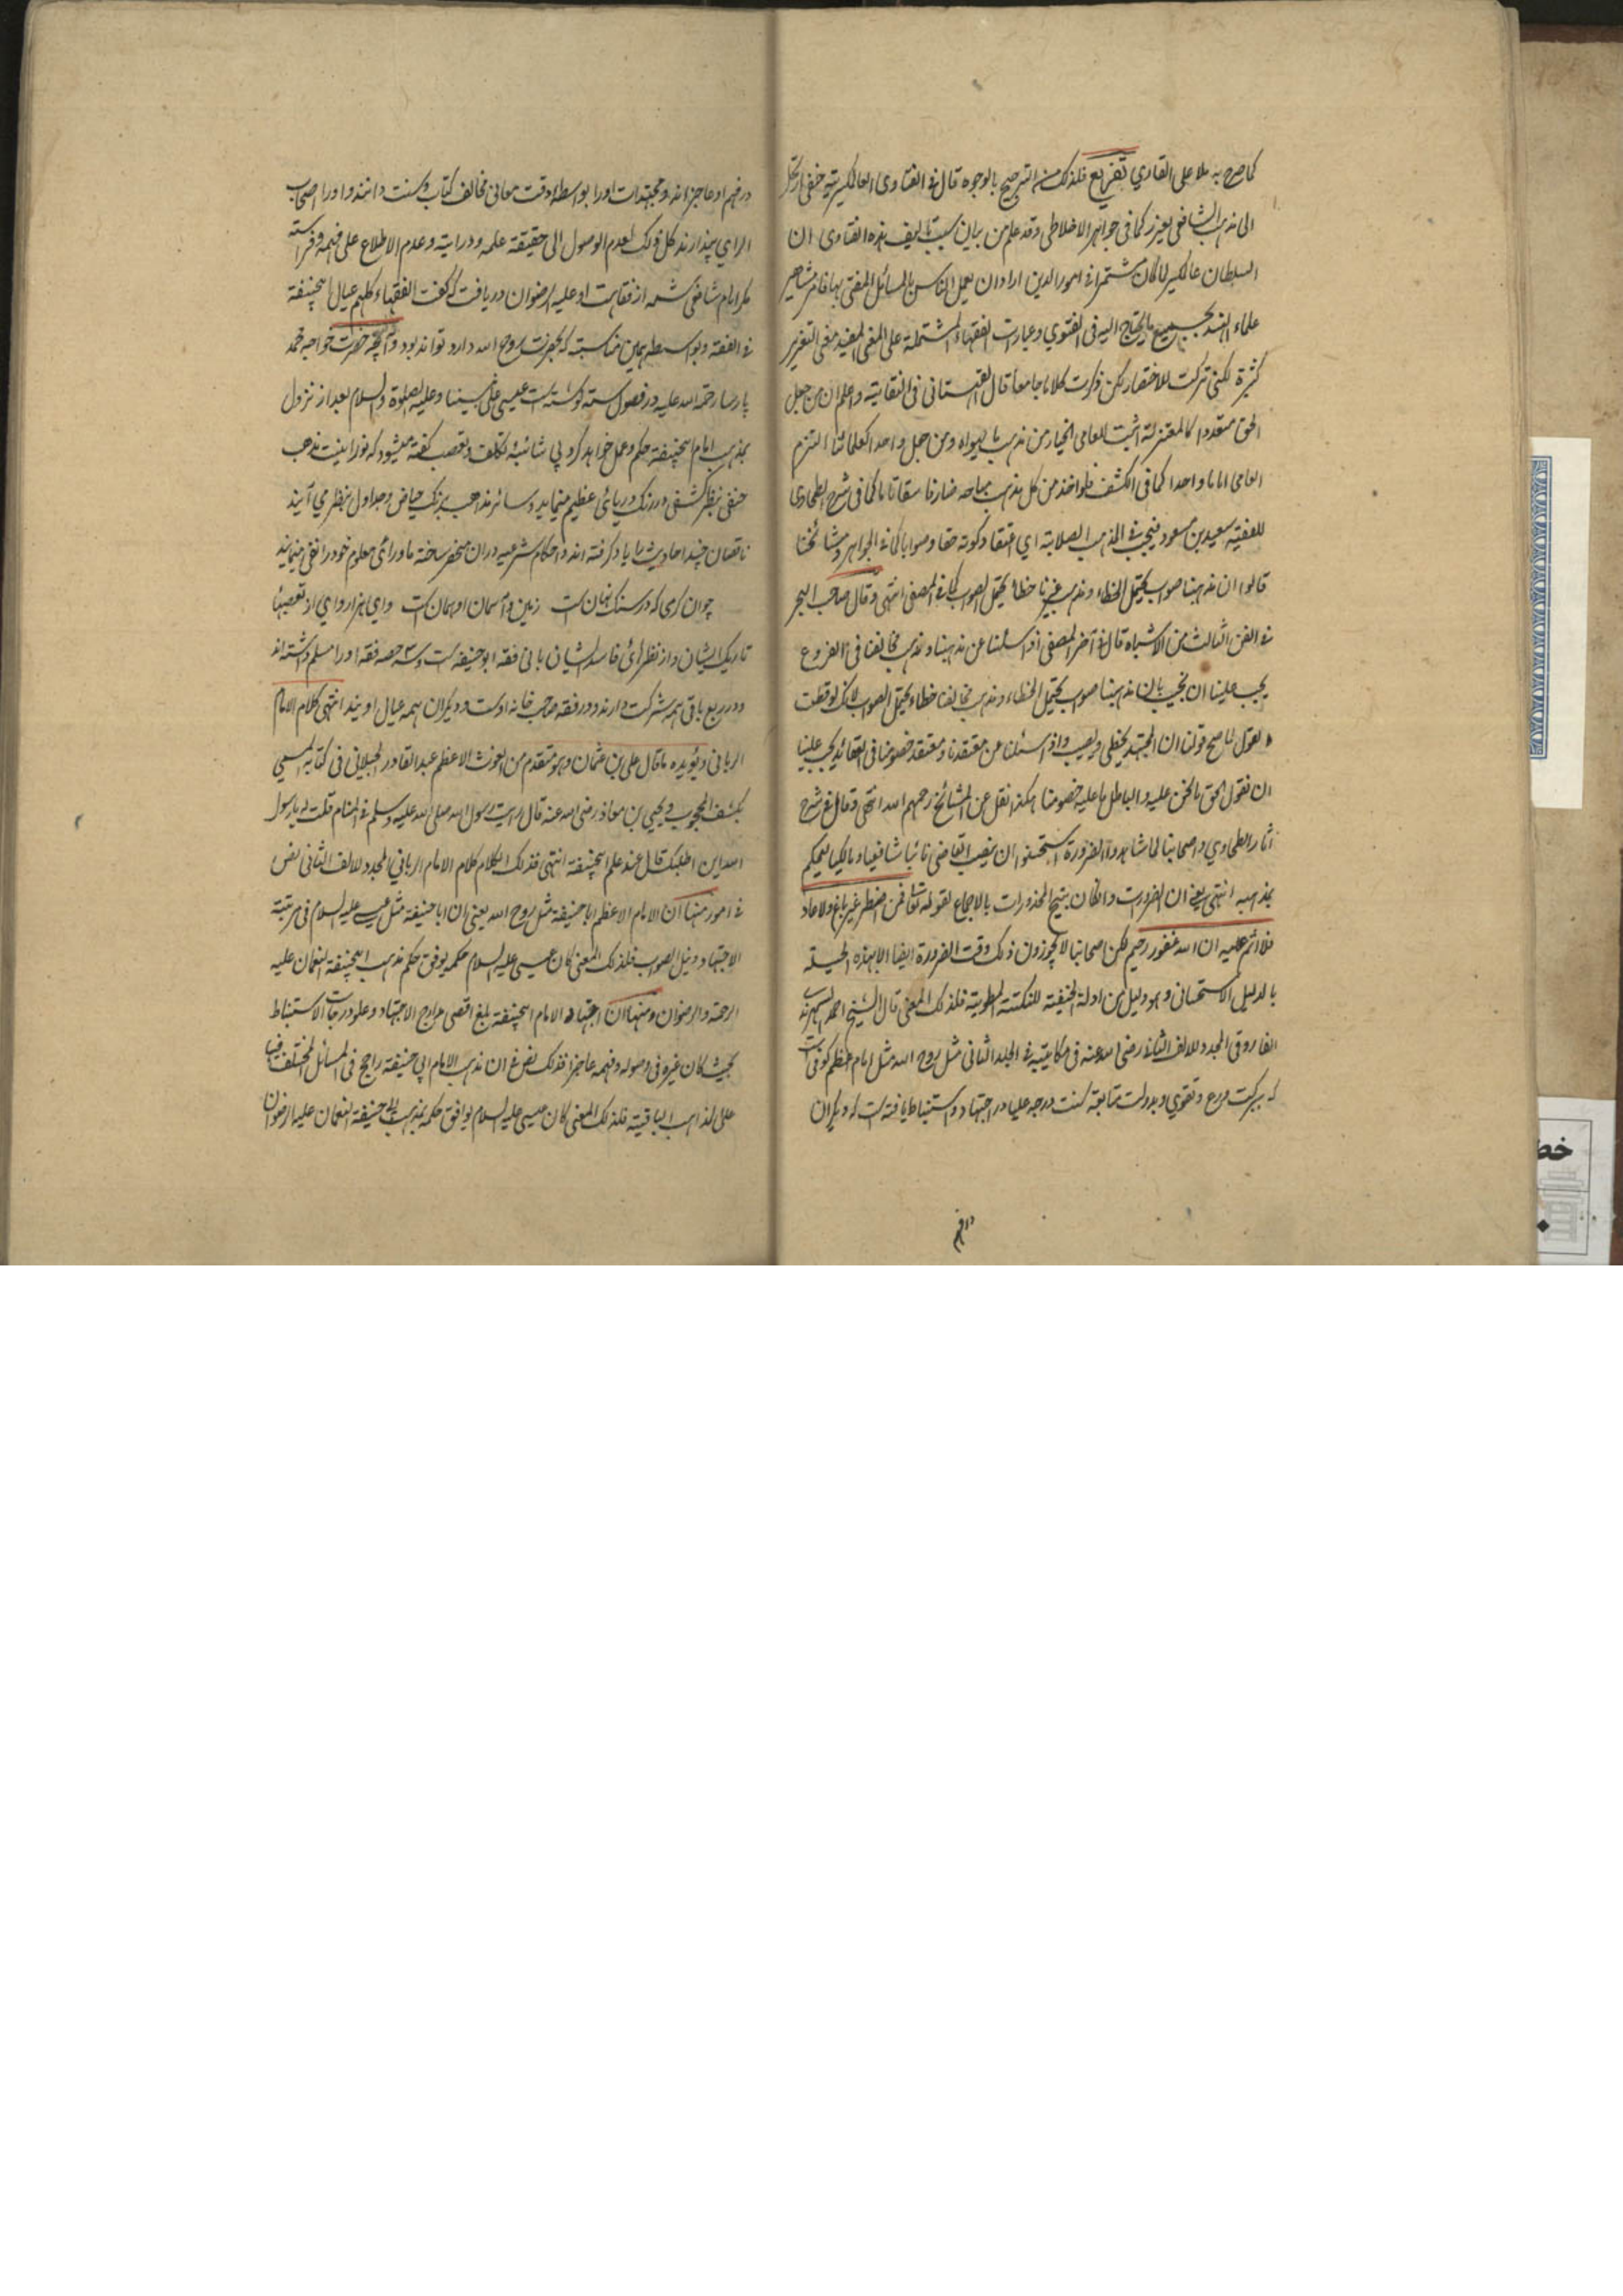 كما صرح به ملا على القاري تفريع فلذلك منه الترجيح بالوجوه قال فى الفتاوى العالمكيرية حنفى ارتحل
الى مذهب الشافعى يعزر كما فى جواهر الاخلاطى وقد علم من بيان سبب تاليف هذه الفتاوى ان
السلطان عالمكير لما كان مشتمرا فى امور الدين اراد ان يعمل الناس بالمسائل المفتى بها فامر مشاهير
علماء الهند بجميع ما يحتاج اليه فى الفتوي وعبارات الفقهاء المشتملة على المعنى المفيد معنى التعزير
كثيرة لكنى تركت للاختصار لكن ذكرت كلاما جامعا قال القهستانى فى النقاية واعلم ان من جعل
الحق متعددا كالمعتزلة اثبت للعامى الخيار من كل مذهب ما يهواه ومن جعل واحدا كعلمائنا الزم
العامى اماما واحدا كما فى الكشف فلو اخذ من كل مذهب مباحه صار فاسقا تاما كما فى شرح الطحاوى
للفقيه سعيد بن مسعود فيجب فى المذهب الصلابة اي اعتقاد كونه حقا وصوابا كما فى الجواهر ومشائخنا
قالوا ان مذهبنا صواب يحتمل الخطاء ومذهب غيرنا خطا يحتمل الصواب كما فى المصفى انتهى وقال صاحب البحر
فى الفن الثالث من الاشباه قال فى آخر المصفى اذا سئلنا عن مذهبنا ومذهب مخالفنا فى الفروع
يجب علينا ان نجيب بان مذهبنا صواب يحتمل الخطاء ومذهب مخالفنا خطاء يحتمل الصواب لانك لو قطعت
القول لما صح قولنا ان المجتهد يخطى ويصيب واذا سئلنا عن معتقدنا ومعتقد خصومنا فى العقائد يجب علينا
ان نقول الحق ما نحن عليه والباطل ما عليه خصومنا هكذا نقل عن المشائخ رحمهم الله انتهى وقال فى شرح
آثار الطحاوي واصحابنا لما شاهدوا الضرورة استحسنوا ان ينصب القاضى نائبا شافعيا ومالكيا ليحكم
بمذهبه انتهى يعنى ان الضرورت وان كان يتبيح المحذورات بالاجماع لقوله تعالى فمن اضطر غير باغ ولا عاد
فلا اثم عليه ان الله غفور رحيم لكن اصحابنا لا يجوزون ذلك وقت الضرورة ايضا الا بهذه الحيلة
بالدليل الاستحسانى وهو دليل من ادلة الحنفية للنكتة المطوية فلذلك المعنى قال الشيخ احمد السهرندى
الفاروقى المجدد للالف الثانى رضى الله عنه فى مكاتيبه فى الجلد الثانى مثل روح الله مثل امام اعظم كوفى است
كه ببركت ورع وتقوي وبدولت متابعت سنت درجه عليا در اجتهاد واستنباط يافته است كه ديكران
در فهم
در فهم او عاجز اند ومجتهدات اورا بواسطه دقت معانى مخالف كتاب وسنت دانند واورا اصحاب
الراي پندارند كل ذلك لعدم الوصول الى حقيقة علمه ودرايته وعدم الاطلاع على فهمه وفراسته
مكر امام شافعى كه شمه از فقاهت او عليه الرضوان دريافت كه كفت الفقهاء كلهم عيال ابيحنيفة
فى الفقه وبواسطه همين مناسبت كه بحضرت روح الله دارد تواند بود وآنچه حضرت خواجه محمد
پارسا رحمة الله عليه در فصول سته نوشته است عيسى على نبينا وعليه الصلوة والسلام بعد از نزول
بمذهب امام ابيحنيفة حكم وعمل خواهد كرد بى شائبه تكلف وتعصب كفته ميشود كه نورانيت مذهب
حنفى بنظر كشفى در رنك درياى عظيم مينمايد وسائر مذاهب برنك حياض وجداول بنظر مي آيند
ناقصان چند احاديث را ياد كرفته اند واحكام شرعيه دران منحصر ساخته ماوراى معلوم خود را نفى مينمايند
چون آن كرمى كه در سنك نهان است زمين وآسمان او همان است واي هزار واي از تعصبها
تاريك ايشان واز نظرهاى فاسد ايشان بانى فقه ابو حنيفه است وسه حصه فقه اورا مسلم داشته اند
ودر ربع باقى همه شركت دارند ودر فقه صاحب خانه اوست وديكران همه عيال اويند انتهى كلام الامام
الربانى ويؤيده ما قال على بن عثمان وهو متقدم من الغوث الاعظم عبد القادر الجيلانى فى كتابه المسمى
بكشف المحجوب ويحيى بن معاذ رضى الله عنه قال رايت رسول الله صلى الله عليه وسلم فى المنام قلت له يا رسول
الله اين اطلبك قال عند علم ابيحنيفة انتهى فذلك الكلام كلام الامام الربانى المجدد للالف الثانى نص
فى امور منها ان الامام الاعظم ابا حنيفة مثل روح الله يعنى ان ابا حنيفة مثل عيسى عليه السلام فى مرتبة
الاجتهاد ونيل الصواب فلذلك المعنى كان عيسى عليه السلام حكمه يوفق حكم مذهب ابيحنيفة النعمان عليه
الرحمة والرضوان ومنها ان اجتهاد الامام ابيحنيفة بلغ اقصى مدارج الاجتهاد وعلو درجات الاستنباط
بحيث كان غيره فى وصوله وفهمه عاجزا فذلك نص فى ان مذهب الامام ابي حنيفة راجح فى المسائل المختلف فيها
على المذاهب الباقية فلذلك المعنى كان عيسى عليه السلام يوافق حكمه بمذهب ابى حنيفة النعمان عليه الرضوان